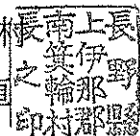 長野縣
上伊那郡
南箕輪村
長之印